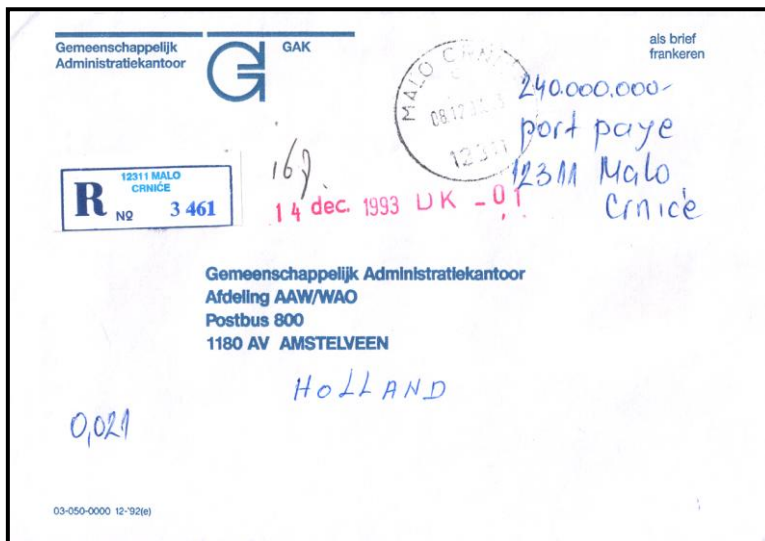 Gemeenschappelijk
Administratiekantoor
GAK
als brief
frankeren
MALO CRNI
08.12.93
12311
240.000.000-
port paye
12311 Malo
Crniće
12311 MALO
CRNIĆE
R № 3 461
167
14 dec. 1993 DK - 01
Gemeenschappelijk Administratiekantoor
Afdeling AAW/WAO
Postbus 800
1180 AV AMSTELVEEN
HOLLAND
0,021
03-050-0000 12-'92(e)